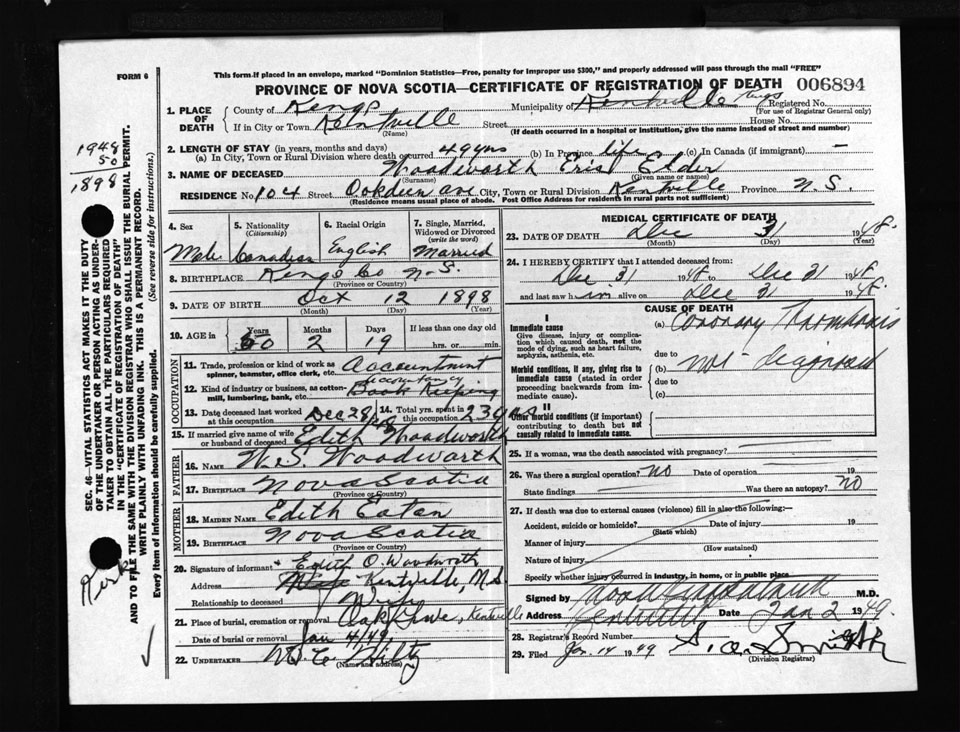 FORM 6
This form, if placed in an envelope, marked "Dominion Statistics—Free, penalty for improper use $300," and properly addressed will pass through the mail "FREE"
PROVINCE OF NOVA SCOTIA—CERTIFICATE OF REGISTRATION OF DEATH 006894
1. PLACE OF DEATH
County of Kings Municipality of Kentville Kings Registered No.
(For use of Registrar General only)
If in City or Town Kentville Street House No.
(Name) (If death occurred in a hospital or institution, give the name instead of street and number)
2. LENGTH OF STAY (in years, months and days)
(a) In City, Town or Rural Division where death occurred 49 yrs (b) In Province life (c) In Canada (if immigrant) —
3. NAME OF DECEASED Woodworth Eric Elder
(Surname) (Given name or names)
RESIDENCE No. 104 Street Oakdien ave City, Town or Rural Division Kentville Province N.S.
(Residence means usual place of abode. Post Office Address for residents in rural parts not sufficient)
4. Sex Male
5. Nationality (Citizenship) Canadian
6. Racial Origin English
7. Single, Married, Widowed or Divorced (write the word) Married
8. BIRTHPLACE Kings Co N.S.
(Province or Country)
9. DATE OF BIRTH Oct 12 1898
(Month) (Day) (Year)
10. AGE in Years Months Days If less than one day old
50 2 19 hrs. or min.
OCCUPATION
11. Trade, profession or kind of work as spinner, teamster, office clerk, etc. Accountment
12. Kind of industry or business, as cotten-mill, lumbering, bank, etc. accountancy Book Keeping
13. Date deceased last worked at this occupation Dec 28/48
14. Total yrs. spent in this occupation 23 yrs
15. If married give name of wife or husband of deceased Edith Woodworth
FATHER
16. NAME W.S. Woodworth
17. BIRTHPLACE Nova Scotia
(Province or Country)
MOTHER
18. MAIDEN NAME Edith Eaton
19. BIRTHPLACE Nova Scotia
(Province or Country)
20. Signature of informant Edith O. Woodworth
Address Kentville, N.S.
Relationship to deceased Wife
21. Place of burial, cremation or removal Oak Grove, Kentville
Date of burial or removal Jan 4/49
22. UNDERTAKER W.C. Hiltz
(Name and address)
MEDICAL CERTIFICATE OF DEATH
23. DATE OF DEATH Dec 31 1948
(Month) (Day) (Year)
24. I HEREBY CERTIFY that I attended deceased from:
Dec 31 1948 to Dec 31 1948
and last saw him alive on Dec 31 1948.
CAUSE OF DEATH
I
Immediate cause
Give disease, injury or complication which caused death, not the mode of dying, such as heart failure, asphyxia, asthenia, etc.
(a) Coronary Thrombosis
due to
Morbid conditions, if any, giving rise to immediate cause (stated in order proceeding backwards from immediate cause).
(b) not diagnosed
due to
(c)
II
Other morbid conditions (if important) contributing to death but not causally related to immediate cause.
25. If a woman, was the death associated with pregnancy?
26. Was there a surgical operation? no Date of operation 19
State findings Was there an autopsy? no
27. If death was due to external causes (violence) fill in also the following:—
Accident, suicide or homicide? Date of injury 19
(State which)
Manner of injury
(How sustained)
Nature of injury
Specify whether injury occurred in industry, in home, or in public place
Signed by M.D.
Address Kentville Date Jan 2 1949.
28. Registrar's Record Number
29. Filed Jan. 14 1949
(Division Registrar)
SEC. 46—VITAL STATISTICS ACT MAKES IT THE DUTY
OF THE UNDERTAKER OR PERSON ACTING AS UNDER-
TAKER TO OBTAIN ALL THE PARTICULARS REQUIRED
IN THE "CERTIFICATE OF REGISTRATION OF DEATH"
AND TO FILE THE SAME WITH THE DIVISION REGISTRAR WHO SHALL ISSUE THE BURIAL PERMIT.
WRITE PLAINLY WITH UNFADING INK. THIS IS A PERMANENT RECORD.
Every item of information should be carefully supplied. (See reverse side for instructions.)
1948
50
1898